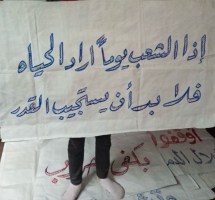 إذا الشعب يوماً اراد الحياه
فلا بد أن يستجيب القدر
اوقفوا
بكفي حرب